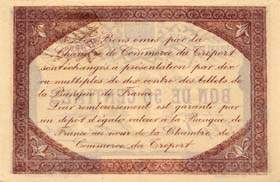 Les Bons émis par la
Chambre de Commerce du Tréport
sont échangés à présentation par dix
ou multiples de dix contre des billets de
la Banque de France
Leur remboursement est garanti par
un dépôt d'égale valeur à la Banque de
France au nom de la Chambre de
Commerce du Tréport
BON DE